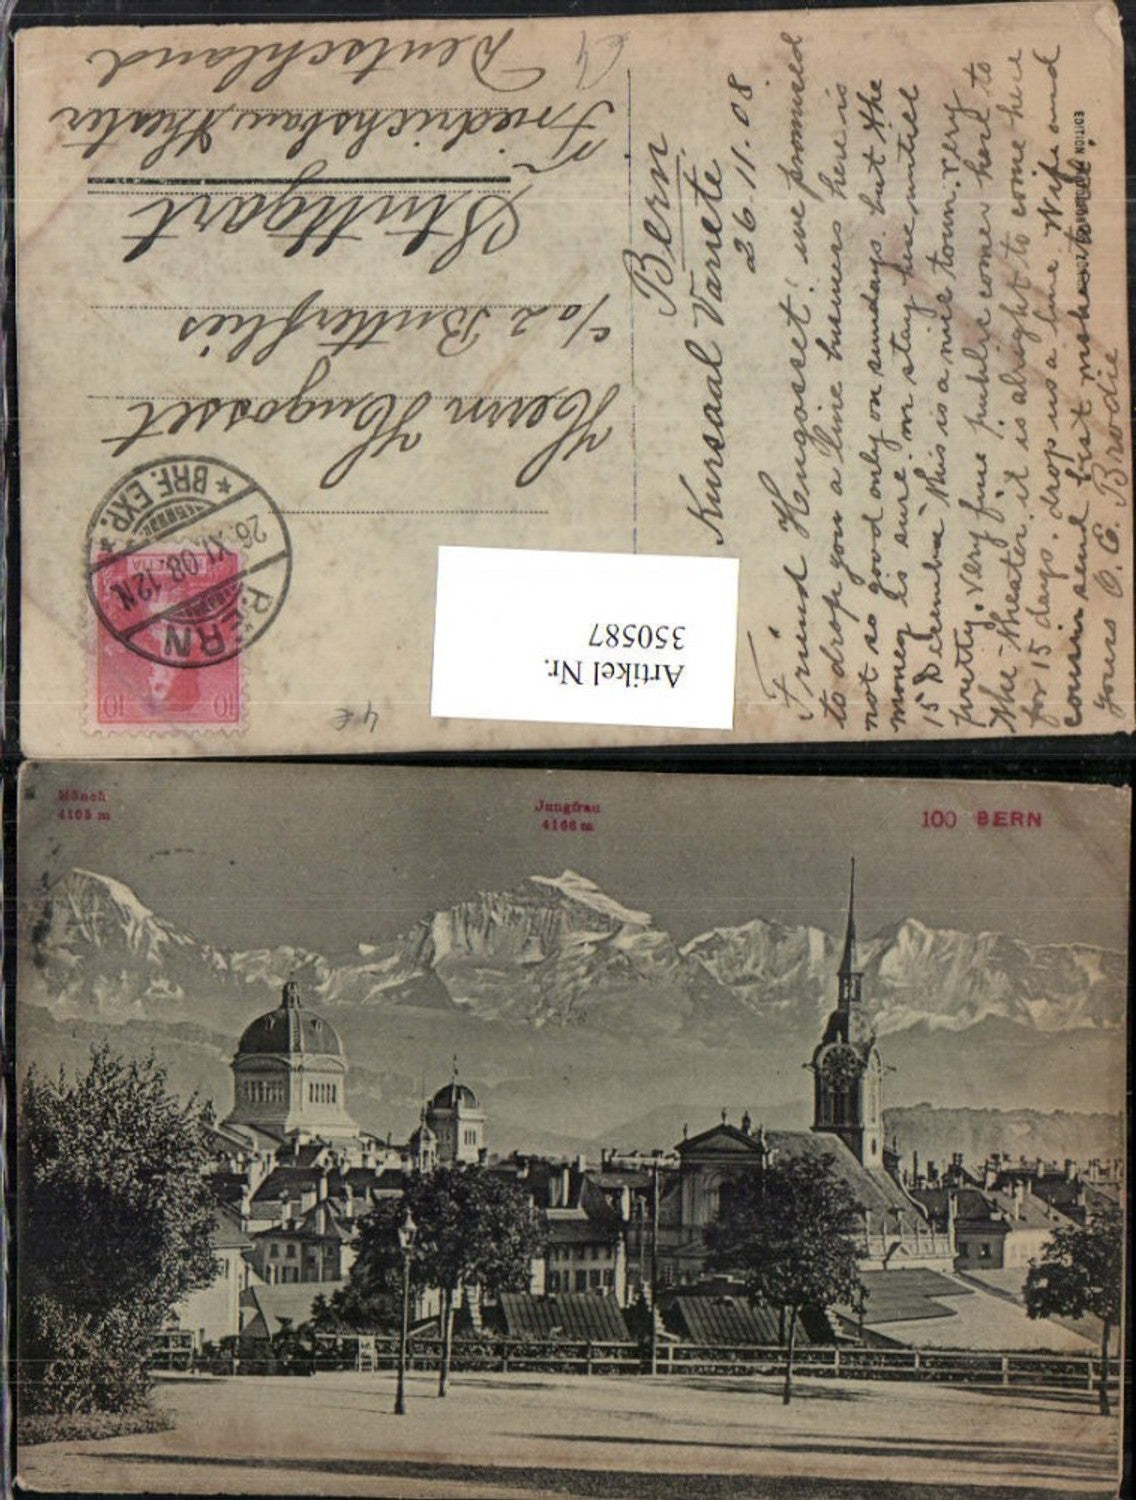 Deutschland
Friedrichsbau, Theater
Stuttgart
c/o 2 Butterflies
Herrn Hugosset
BERN
26. XI. 08. 12
BRF. EXP.
10 10
4 €
Artikel Nr.
350587
Bern
Kursaal Variete
26-11.08.
Friend Hugosset! we promised
to drop you a line business here is
not so good only on sundays. but the
money is sure. m stay here untill
15 Decembre this is a nice town. very
pretty. very fine public comes here to
the theater. it is alright to come here
for 15 days. drop us a line Nife and
cousin send best
yours O. E. Brodie
EDITION
Mönch
4105 m
Jungfrau
4166 m
100 BERN